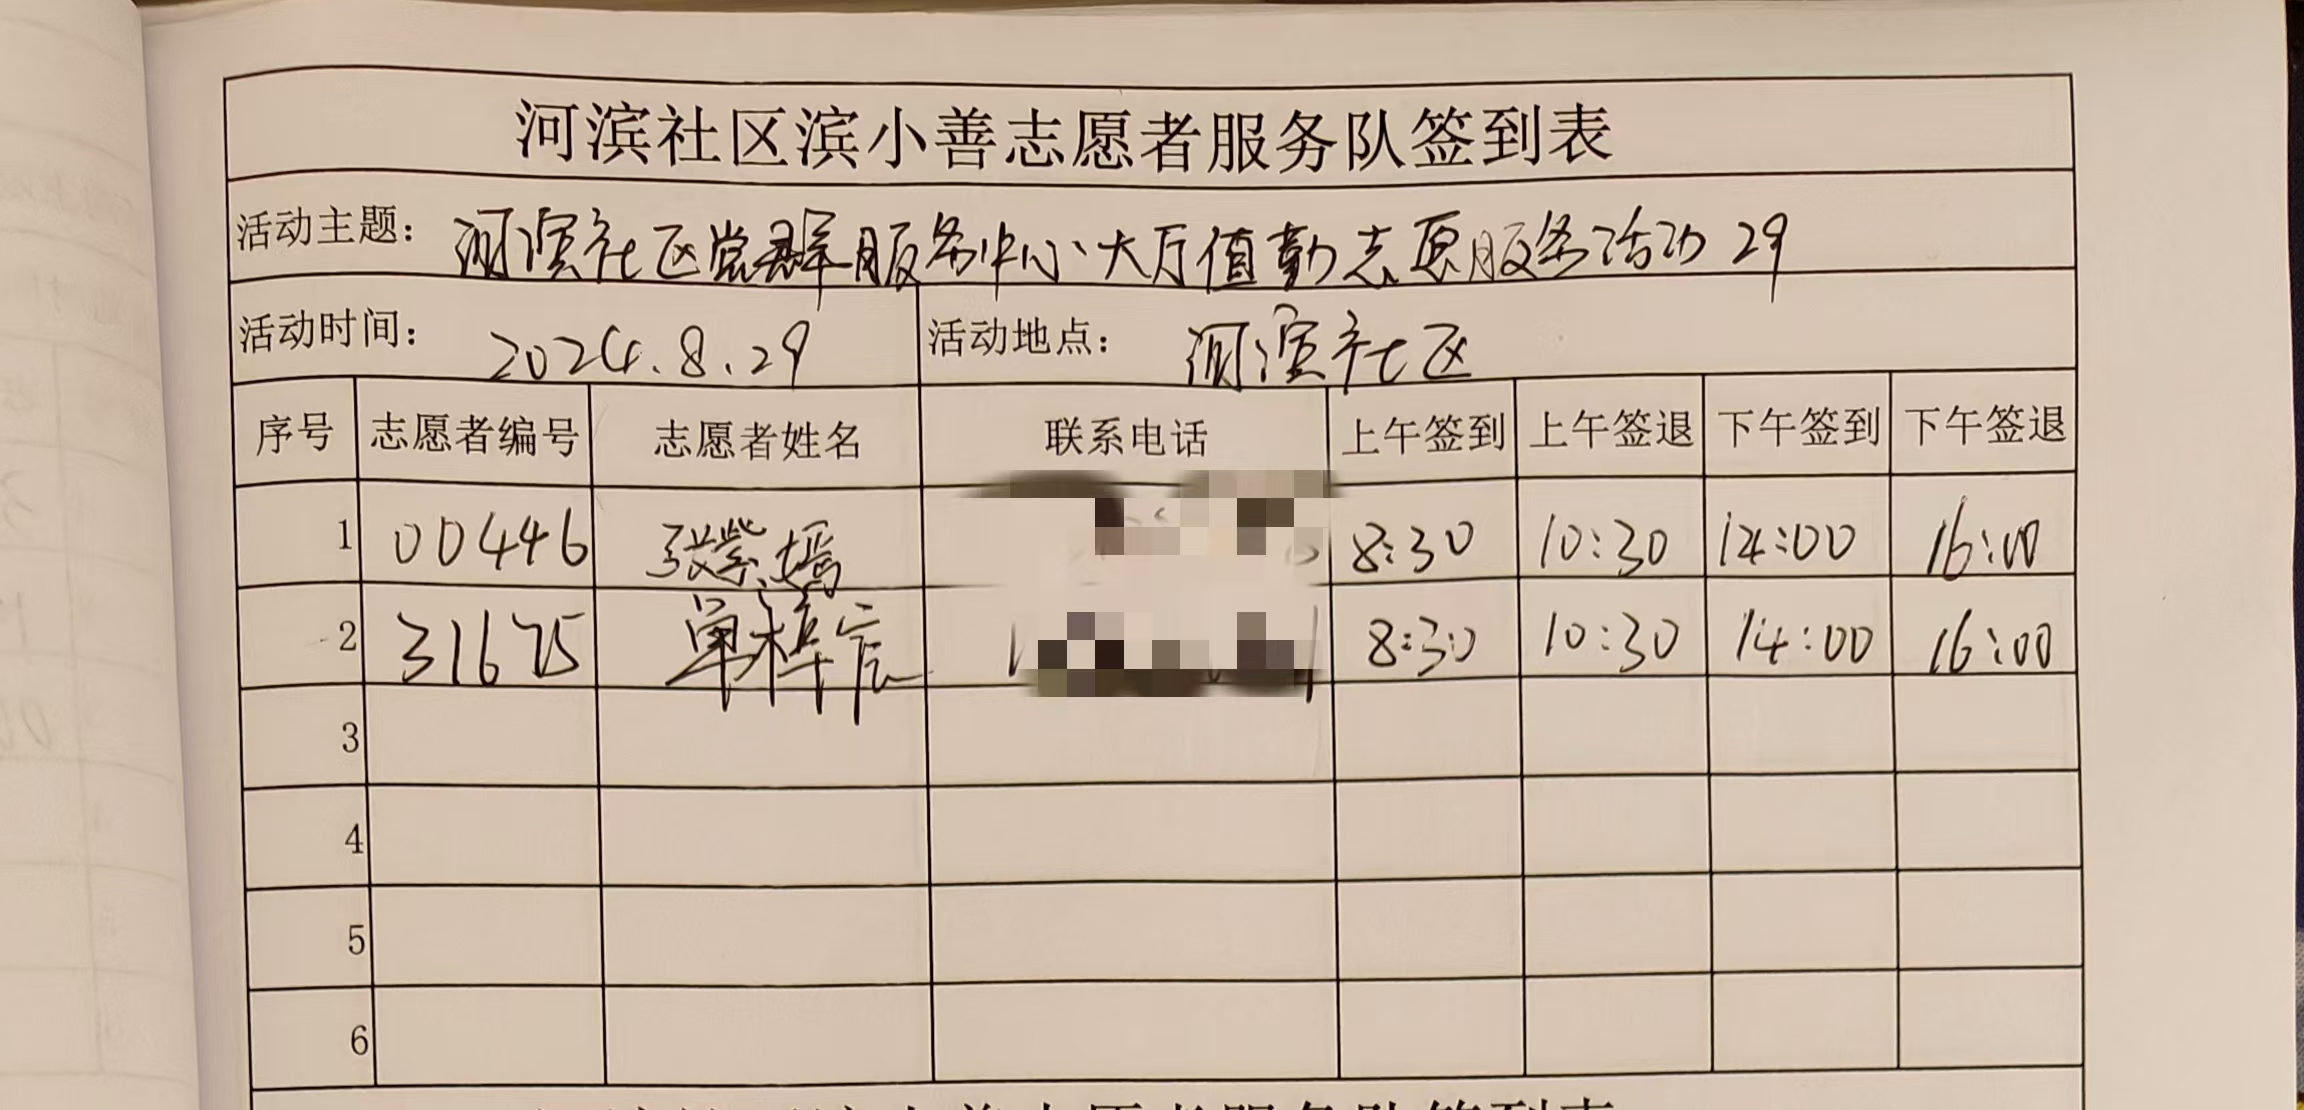 河滨社区滨小善志愿者服务队签到表
活动主题： 河滨社区党群服务中心大厅值勤志愿服务活动29
活动时间： 2024.8.29 活动地点： 河滨社区
序号 志愿者编号 志愿者姓名 联系电话 上午签到 上午签退 下午签到 下午签退
1 00446 张紫嫣 8:30 10:30 14:00 16:00
2 31675 单梓宸 8:30 10:30 14:00 16:00
3
4
5
6